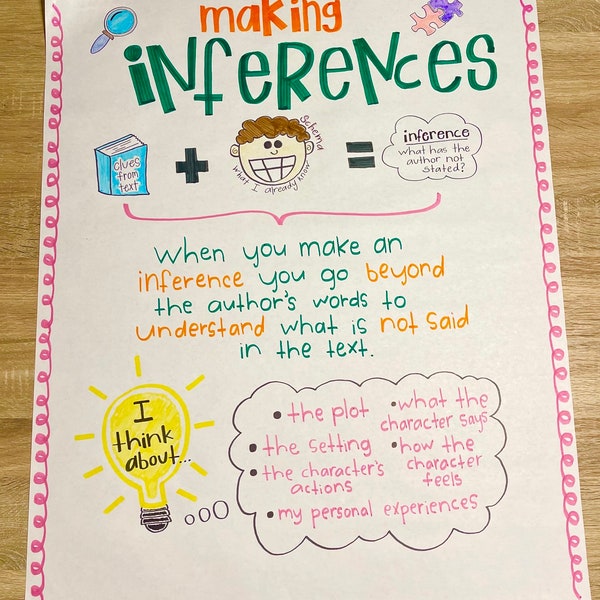 making
inferences
clues
from
text
+
schema
what I already know
=
inference
what has the
author not
stated?
When you make an
inference you go beyond
the author's words to
understand what is not said
in the text.
I
think
about...
• the plot
• the setting
• the character's
actions
• what the
character says
• how the
character
feels
• my personal experiences